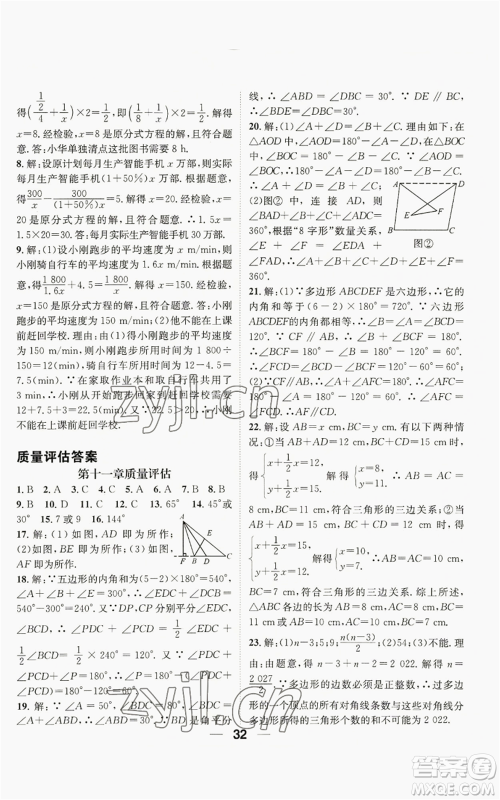 得(1/2/4+1/x)×2=1/2,即(1/8+1/x)×2=1/2. 解得
x=8. 经检验,x=8 是原分式方程的解,且符合题
意. 答:小华单独清点这批图书需要 8 h.
8. 解:设原计划每月生产智能手机 x 万部,则实际
每月生产智能手机(1+50%)x 万部. 根据题意,
得300/x-300/(1+50%)x=5. 解得 x=20. 经检验,x=
20 是原分式方程的解,且符合题意. 1.5x=20×
1.5=30. 答:每月实际生产智能手机 30 万部.
9. 解:(1)设小刚跑步的平均速度为 x m/min,则
小刚骑自行车的平均速度为 1.6x m/min. 根据题
意,得1 800/1.6x+4.5=1 800/x. 解得 x=150. 经检验,
x=150 是原分式方程的解,且符合题意. 答:小刚
跑步的平均速度为 150 m/min. (2)他不能在上课
前赶回学校. 理由如下:∵小刚跑步的平均速度
为 150 m/min,∴小刚跑步所用时间为 1 800÷
150=12(min),骑自行车所用时间为 12-4.5=
7.5(min). ∵在家取作业本和取自行车共用了
3 min,∴小刚从开始跑步回家到赶回学校需要
12+7.5+3=22.5(min). 又∵22.5>20,∴小刚
不能在上课前赶回学校.
质量评估答案
第十一章质量评估
1. B 2. A 3. C 4. A 5. C 6. A 7. B 8. B
9. B 10. D 11. C 12. D 13. 65° 14. 45°或
30° 15. 7 或 9 16. 144°
17. 解:(1)如图,AD 即为所作;
(2)如图,BE 即为所作;(3)如图,
AF 即为所作.
A
F B D C
18. 解:∵五边形的内角和为(5-2)×180°=540°,
∠A+∠B+∠E=300°,∴∠EDC+∠BCD=
540°-300°=240°. 又∵DP,CP 分别平分∠EDC,
∠BCD,∴∠PDC+∠PCD=1/2∠EDC+1/2
∠BCD=1/2×240°=120°. ∴∠P=180°-
(∠PDC+∠PCD)=180°-1/2(∠EDC+∠BCD)
=180°-120°=60°.
19. 解:∵∠A+∠ADC+∠C=180°,
线,∴∠ABD=∠DBC=30°. ∵DE∥BC,
∴∠EDB=∠DBC=30°.
20. 解:(1)∠A+∠D=∠B+∠C. 理由如下:在
△AOD 中,∠AOD=180°-∠A-∠D,在△BOC
中,∠BOC=180°-∠B-∠C. ∵∠AOD=
∠BOC,∴180°-∠A-∠D=180°-∠B-∠C.
∴∠A+∠D=∠B+∠C.
(2)如图②中,连接 AD,
根据“8 字形”数量关系,
∠E+∠F=∠EDA+
∠FAD,∴∠A+∠B+
∠C+∠D+∠E+∠F=
360°.
图②
21. 解:(1)∵多边形 ABCDEF 是六边形,∴它的
内角和等于(6-2)×180°=720°. (2)∵六边形
ABCDEF的内角都相等,∴∠B=720°÷6=
120°. ∵CF∥AB,∴∠B+∠BCF=180°.
∴∠BCF=60°. (3)∵CF∥AB,∴∠AFC+
∠FAB=180°. ∴∠AFC=180°-120°=60°.
22. 解:设 AB=AC=x cm,BC=y cm. 有以下两种
情况:①当 AB+AD=12 cm,BC+CD=15 cm 时,
得{x+1/2x=12, y+1/2x=15. 解得{x=8, y=11. 即 AB=AC=
8 cm,BC=11 cm,符合三角形的三边关系. ②当
AB+AD=15 cm,BC+CD=12 cm 时,得
{x+1/2x=15, y+1/2x=12. 解得{x=10, y=7. 即 AB=AC=10 cm,
BC=7 cm,符合三角形的三边关系. 综上所述,
△ABC 的各边长为 AB=AC=8 cm,BC=11 cm 或
AB=AC=10 cm,BC=7 cm.
23. 解:(1)n-3;5;9;n(n-3)/2 (2)③不可能. 理由
如下:根据题意,得 n-3+n-2=2 022. 解得 n=
2 027/2. ∵多边形的边数必须是正整数,∴过多边
形的一个顶点的所有对角线条数与这些对角线分
多边形所得的三角形个数的和不可能为 2 022.
32
zyjl.cn
zyjl.cn